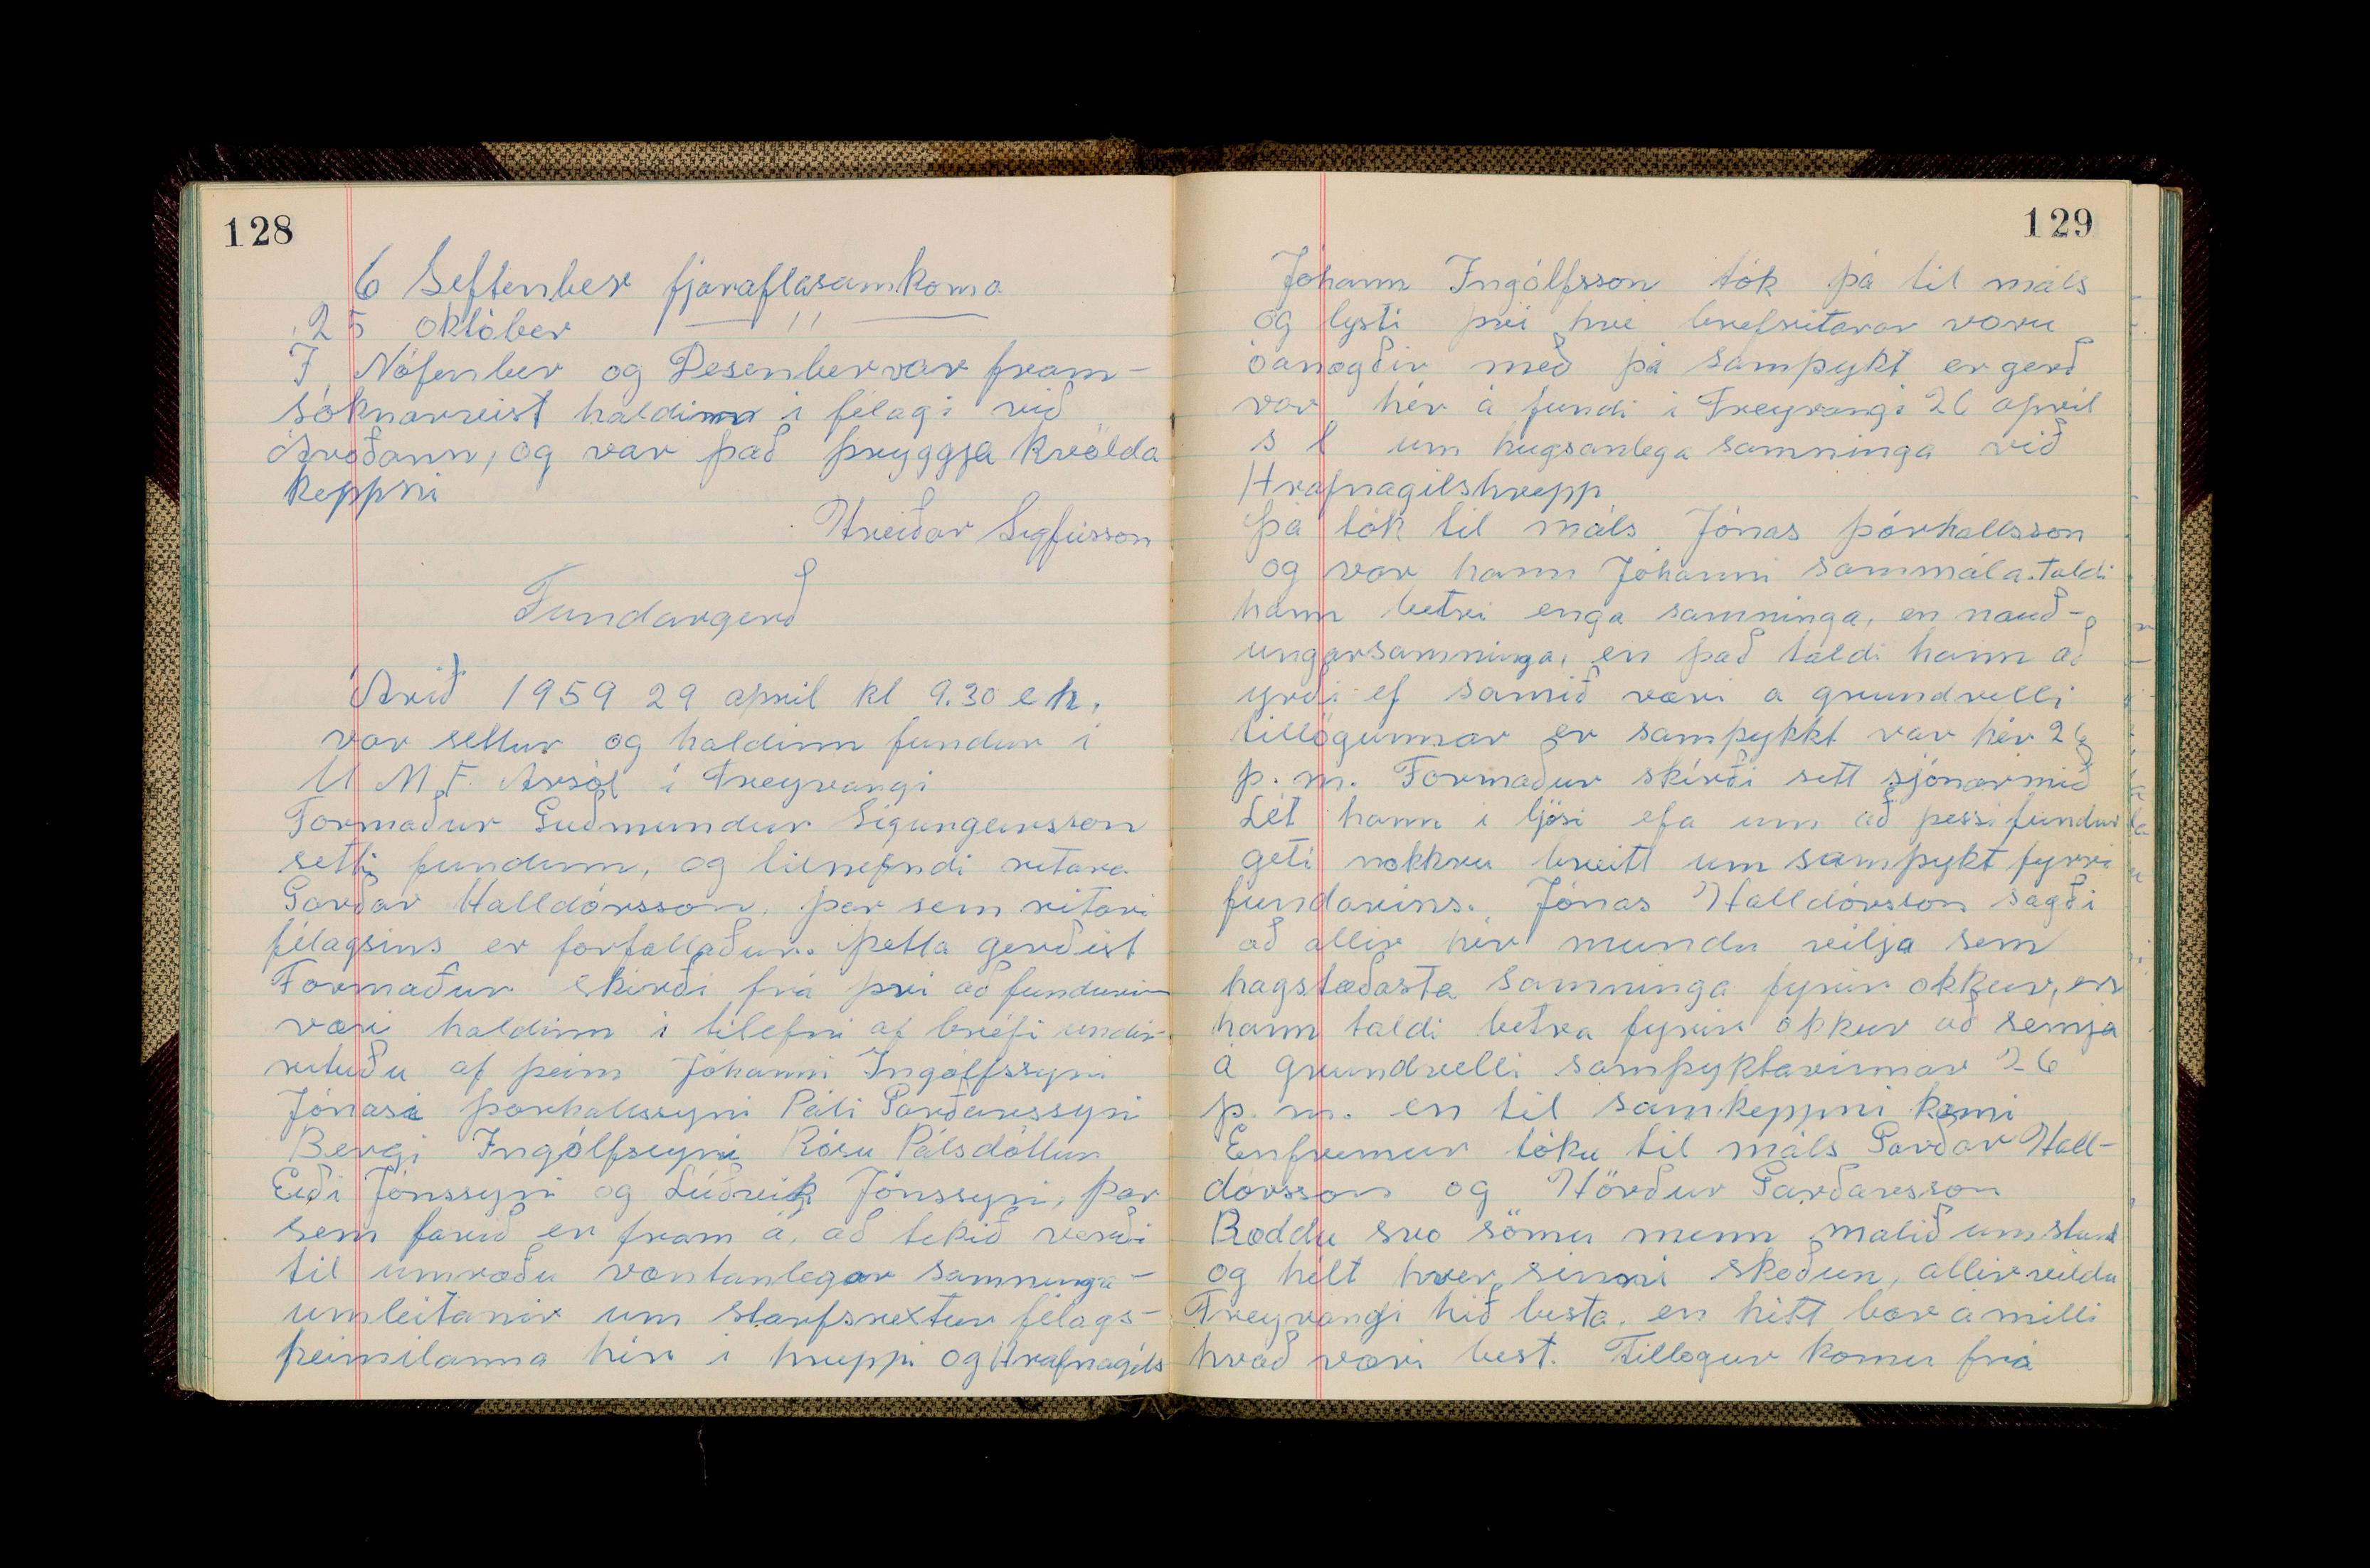 128
6 Seftenber fjaraflasamkoma
25 október — " —
I Nófenber og Desenber var fram-
sóknarvist haldinn i félagi við
Árroðann, og var það þryggja kvölda
keppni
Hreiðar Sigfússon
Fundargerð
Árið 1959 29 april kl 9.30 e h.
var settur og haldinn fundur i
U M F. Arsól i Freyvangi
Formaður Guðmundur Sigurgeirsson
setti fundinn, og tilnefndi ritara
Garðar Halldórsson, þar sem ritari
félagsins er forfallaður. Þetta gerðist
Formaður skírði frá þvi að fundurin
væri haldinn i tilefni af bréfi undir-
rituðu af þeim Jóhanni Ingólfssyni
Jónasi Þorhallssyni Páli Garðarssyni
Bergi Ingólfsyni Rósu Pálsdóttur
Eiði Jónssyni og Lúðvik Jónssyni, þar
sem farið er fram á, að tekið verði
til umræðu væntanlegar samninga-
umleitanir um starfsrextur félags-
heimilanna hér i hreppi og Hrafnagils
129
Jóhann Ingólfsson tók þá til máls
og lysti þvi hve brefritarar voru
óanægðir með þá samþykt er gerð
var hér á fundi i Freyvangi 26 april
s l um hugsanlega samninga við
Hrafnagilshrepp
Þá tók til máls Jónas Þórhallsson
og var hann Jóhanni sammála. Taldi
hann betri enga samninga, en nauð-
ungarsamninga, en það taldi hann að
yrði ef samið væri a grundvelli
tillögunnar er samþykkt var hér 26
þ. m. Formaður skírði sett sjónarmið
Lét hann i ljósi efa um að þessi fundur
geti nokkru breitt um samþykt fyrri
fundarins. Jónas Halldórsson sagði
að allir hér mundu vilja sem
hagstæðasta samninga fyrir okkur, en
hann taldi betra fyrir okkur að semja
á grundvelli samþyktarinnar 26
þ. m. en til samkeppni kæmi
Enfremur tóku til máls Garðar Hall-
dórsson og Hörður Garðarsson
Ræddu svo sömu menn malið um stund
og hélt hver sinni skoðun, allir vildu
Freyvangi hið besta, en hitt bar á milli
hvað væri best. Tillögur komu frá